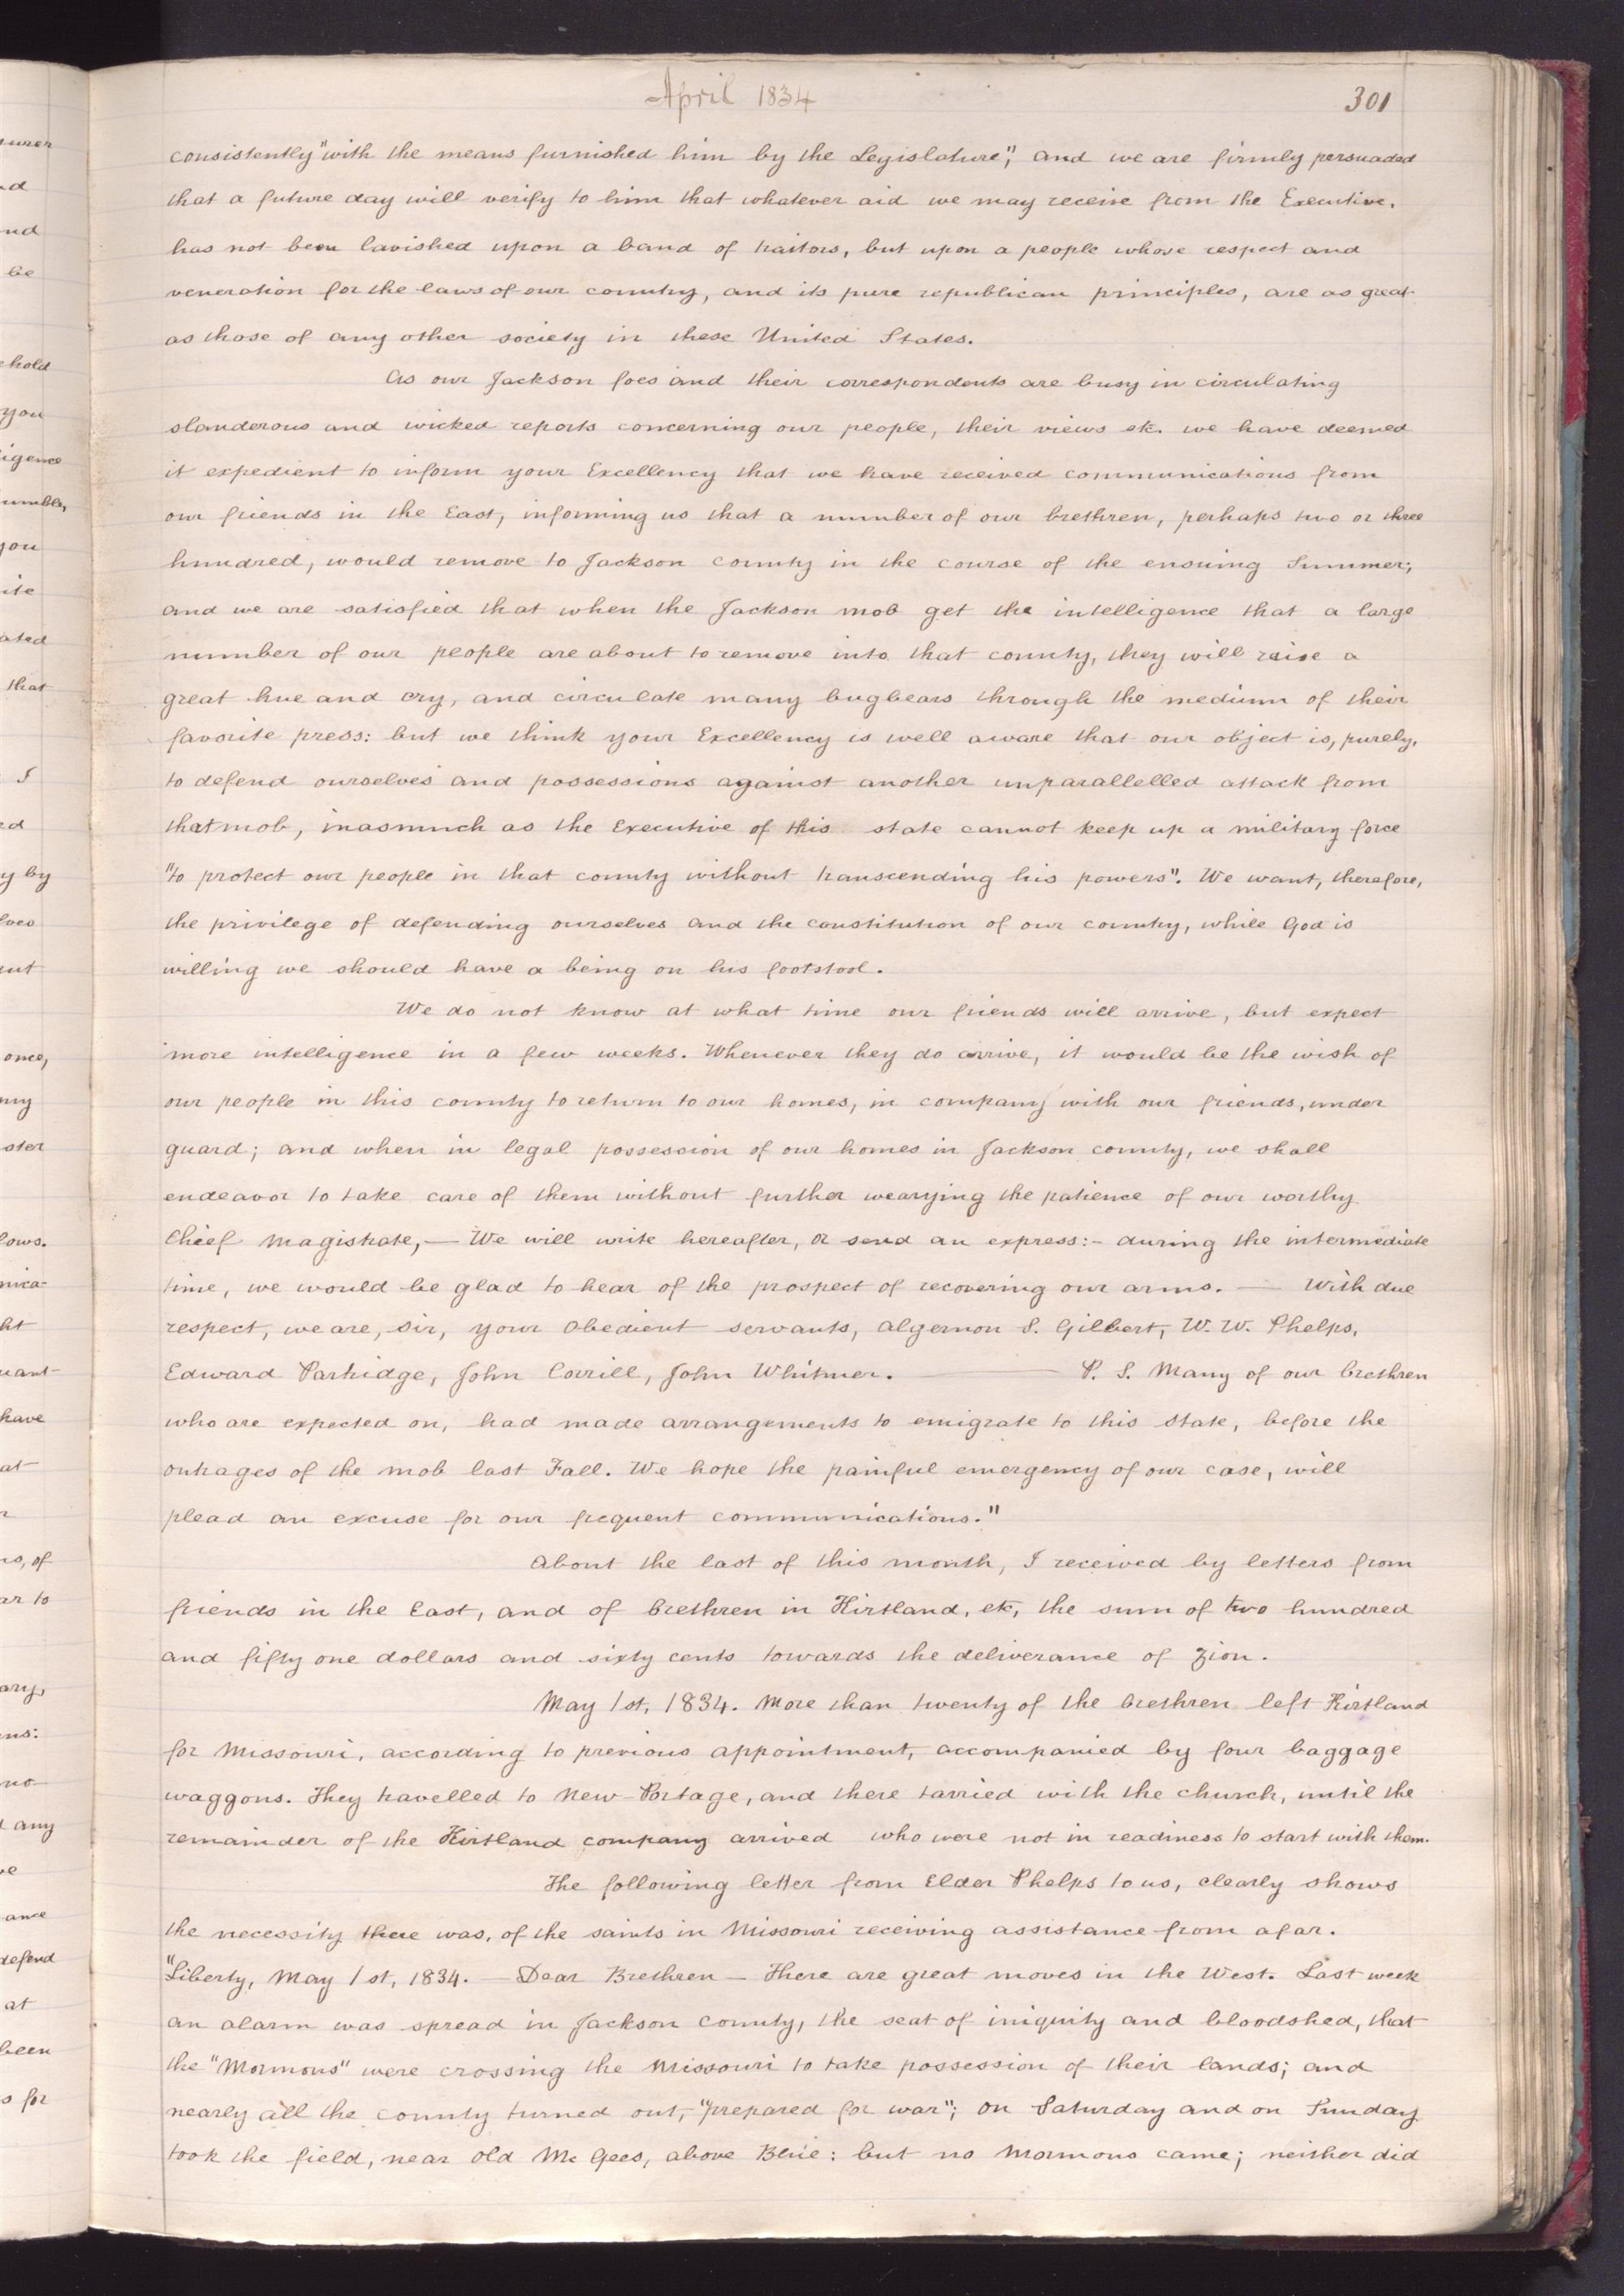 April 1834
301
consistently "with the means furnished him by the Legislature", and we are firmly persuaded
that a future day will verify to him that whatever aid we may receive from the Executive,
has not been lavished upon a band of traitors, but upon a people whose respect and
veneration for the laws of our country, and its pure republican principles, are as great
as those of any other society in these United States.
As our Jackson foes and their correspondents are busy in circulating
slanderous and wicked reports concerning our people, their views etc. we have deemed
it expedient to inform your Excellency that we have received communications from
our friends in the East, informing us that a number of our brethren, perhaps two or three
hundred, would remove to Jackson County in the course of the ensuing Summer;
and we are satisfied that when the Jackson mob get the intelligence that a large
number of our people are about to remove into that county, they will raise a
great hue and cry, and circulate many bugbears through the medium of their
favorite press: but we think your Excellency is well aware that our object is, purely,
to defend ourselves and possessions against another unparallelled attack from
that mob, inasmuch as the Executive of this state cannot keep up a military force
"to protect our people in that county without transcending his powers". We want, therefore,
the privilege of defending ourselves and the constitution of our country, while God is
willing we should have a being on his footstool.
We do not know at what time our friends will arrive, but expect
more intelligence in a few weeks. Whenever they do arrive, it would be the wish of
our people in this county to return to our homes, in company with our friends, under
guard; and when in legal possession of our homes in Jackson county, we shall
endeavor to take care of them without further wearying the patience of our worthy
Chief Magistrate, — We will write hereafter, or send an express:- during the intermediate
time, we would be glad to hear of the prospect of recovering our arms. — With due
respect, we are, Sir, your obedient servants, Algernon S. Gilbert, W. W. Phelps,
Edward Partridge, John Corrill, John Whitmer. — P. S. Many of our brethren
who are expected on, had made arrangements to emigrate to this State, before the
outrages of the mob last Fall. We hope the painful emergency of our case, will
plead an excuse for our frequent communications."
About the last of this month, I received by letters from
friends in the East, and of brethren in Kirtland, etc, the sum of two hundred
and fifty one dollars and sixty cents towards the deliverance of Zion.
May 1st, 1834. More than twenty of the brethren left Kirtland
for Missouri, according to previous appointment, accompanied by four baggage
waggons. They travelled to New-Portage, and there tarried with the church, until the
remainder of the Kirtland company arrived who were not in readiness to start with them.
The following letter from Elder Phelps to us, clearly shows
the necessity there was, of the saints in Missouri receiving assistance from afar.
"Liberty, May 1st, 1834. — Dear Brethren — There are great moves in the West. Last week
an alarm was spread in Jackson County, the seat of iniquity and bloodshed, that
the "Mormons" were crossing the Missouri to take possession of their lands; and
nearly all the county turned out, "prepared for war"; on Saturday and on Sunday
took the field, near old Mc Gees, above Blue: but no Mormons came; neither did